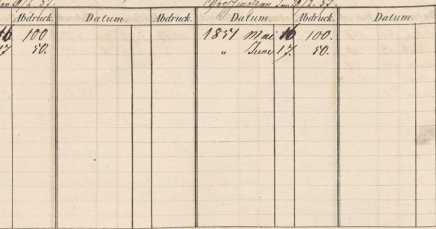 Abdruck. Datum. Abdruck. Datum. Abdruck. Datum.
16 100 1851 Mai 16 100.
17 50. „ Juni 17. 50.